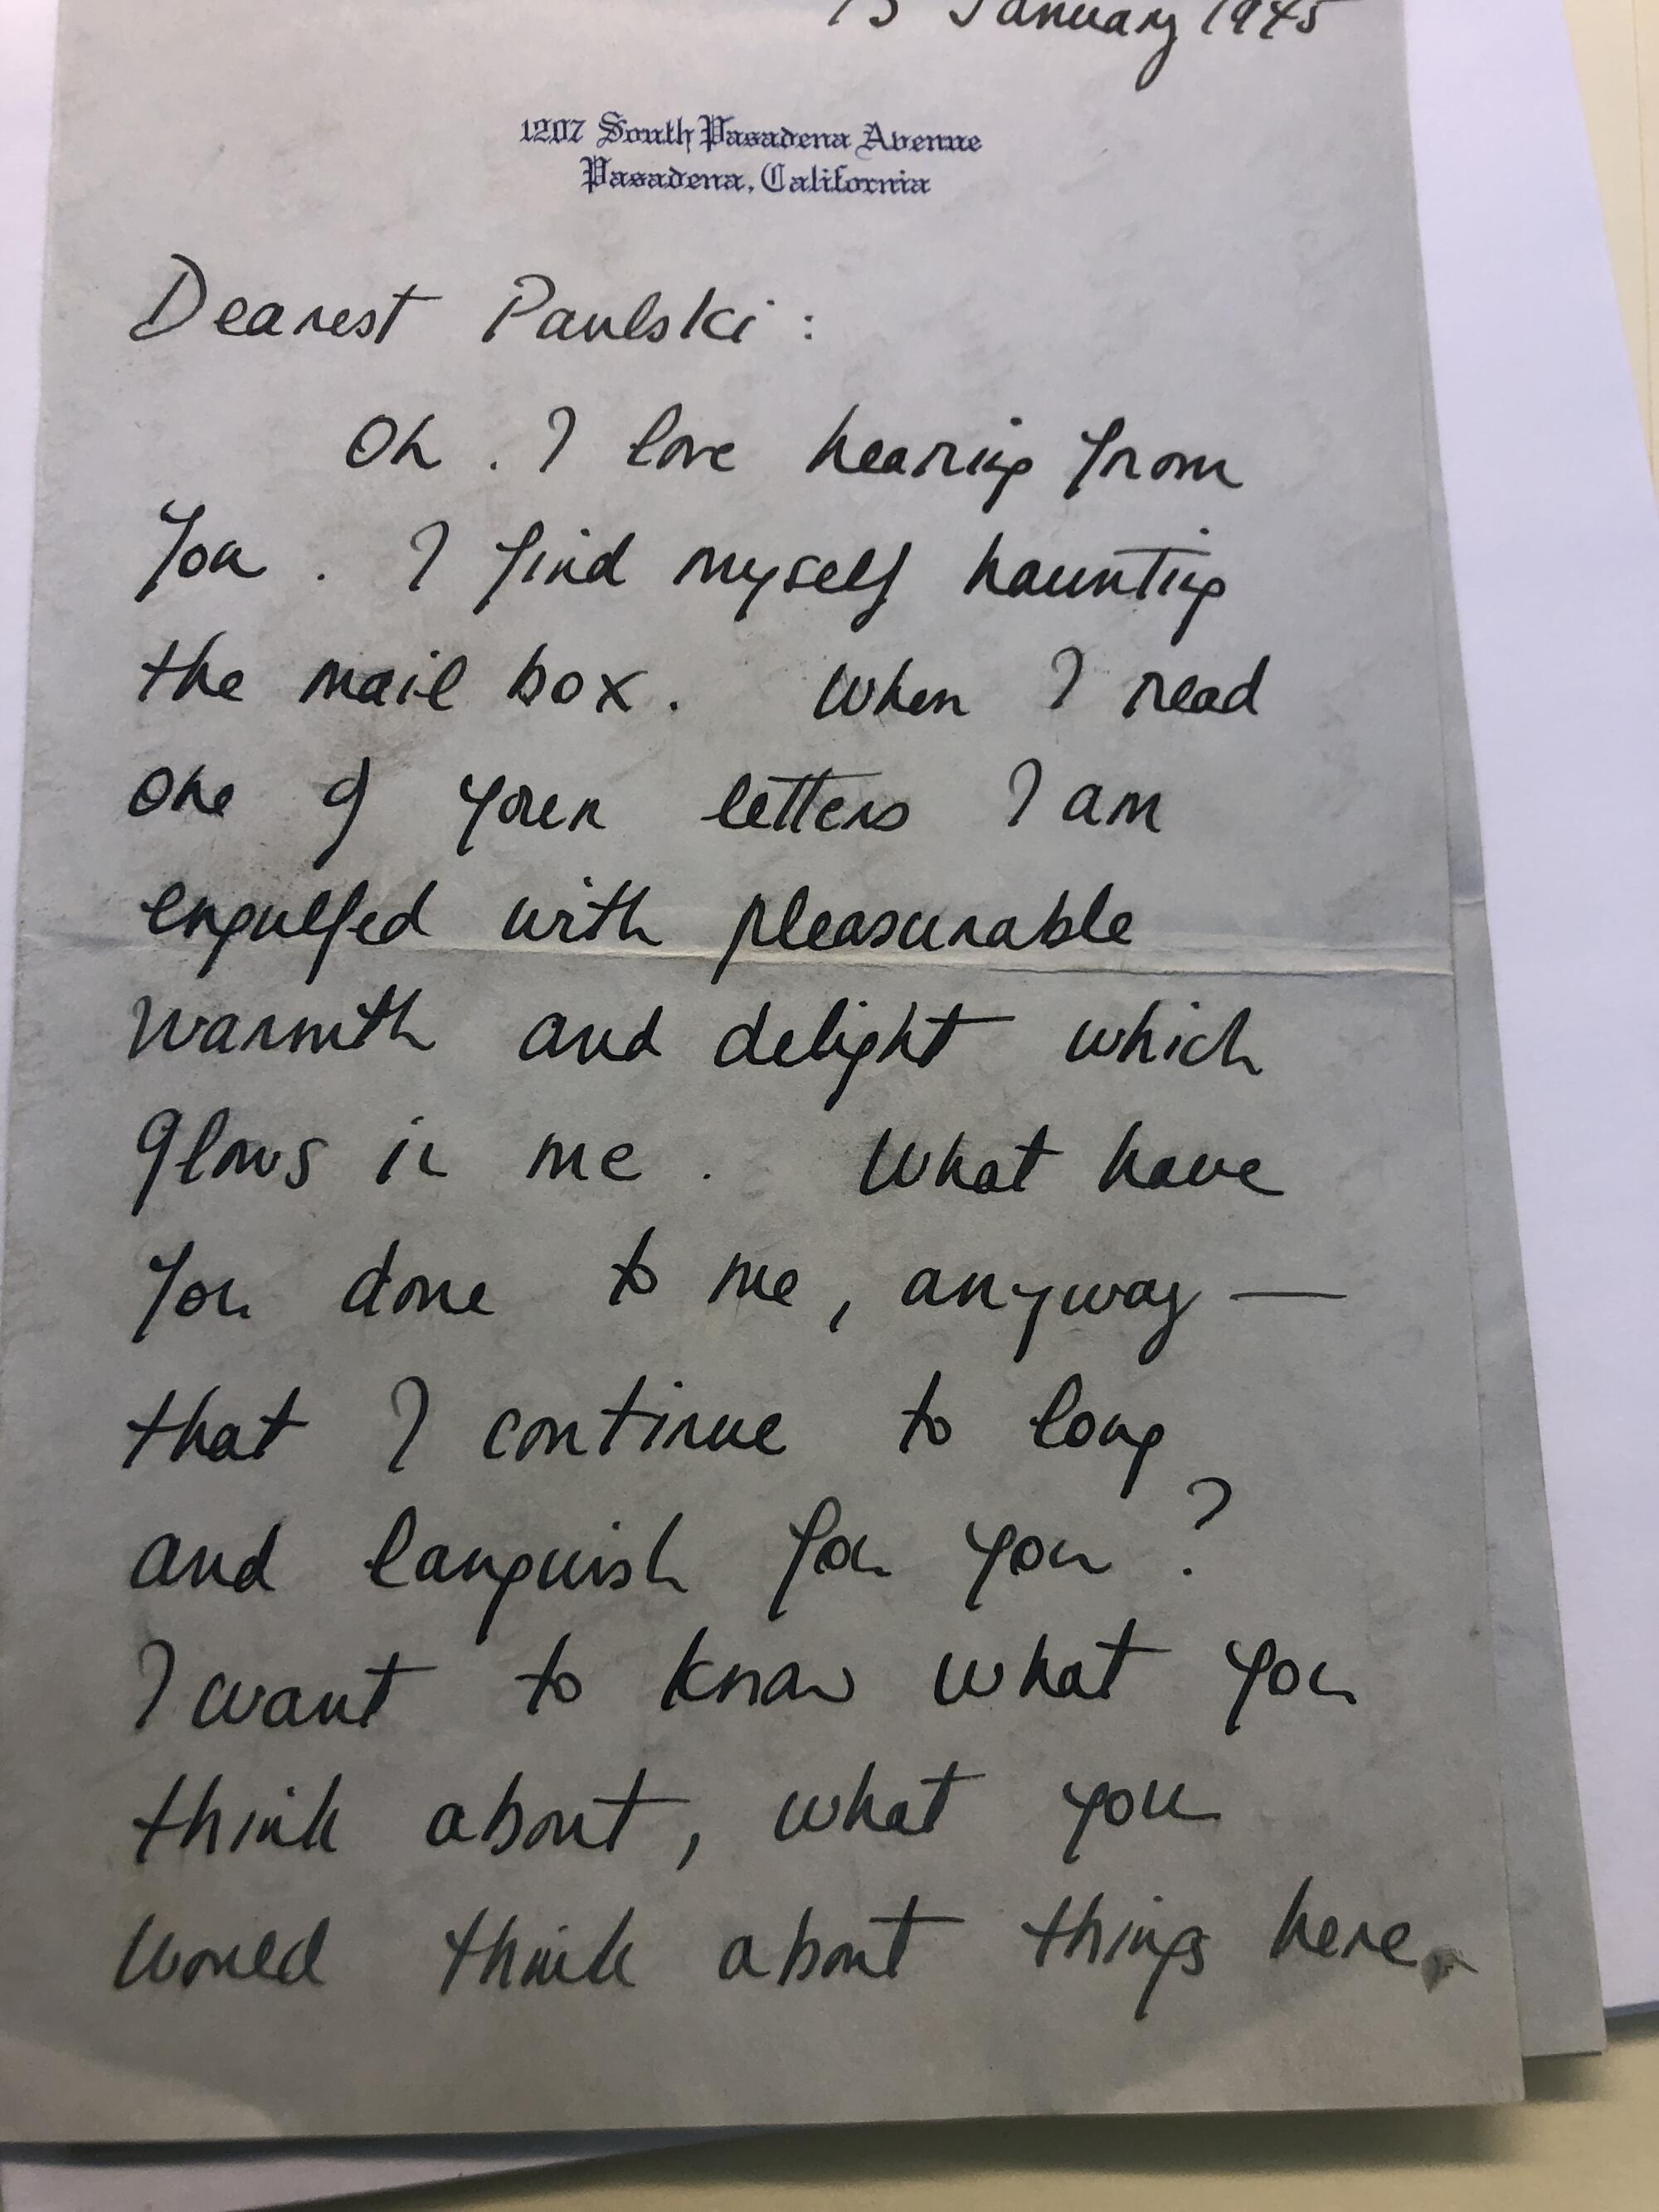 15 January 1945
1207 South Pasadena Avenue
Pasadena, California
Dearest Paulski:
Oh. I love hearing from
you. I find myself haunting
the mail box. When I read
one of your letters I am
engulfed with pleasurable
warmth and delight which
glows in me. What have
you done to me, anyway —
that I continue to long
and languish for you?
I want to know what you
think about, what you
would think about things here.